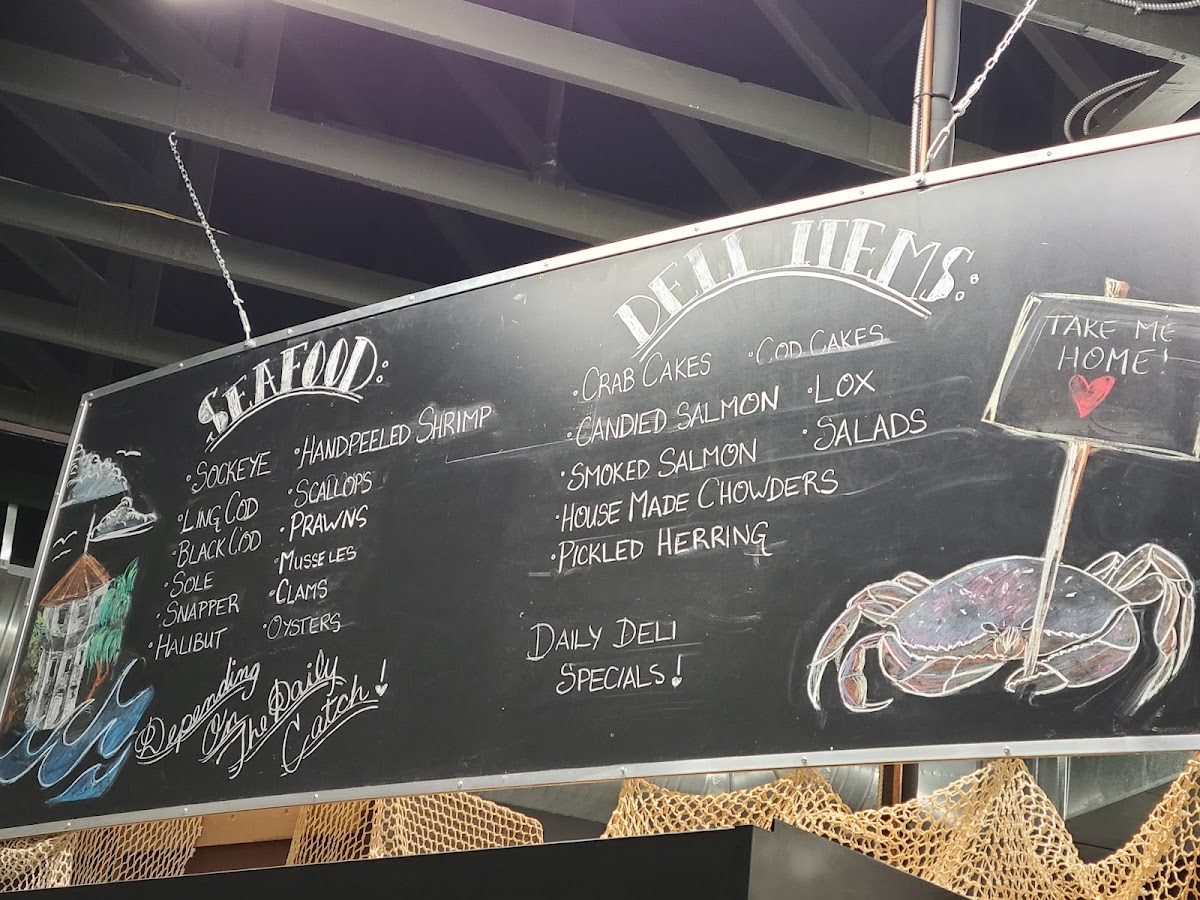 SEAFOOD:
• SOCKEYE
• LING COD
• BLACK COD
• SOLE
• SNAPPER
• HALIBUT
• HANDPEELED SHRIMP
• SCALLOPS
• PRAWNS
• MUSSELES
• CLAMS
• OYSTERS
Depending
On
The Daily
Catch!
DELI ITEMS:
• CRAB CAKES
• CANDIED SALMON
• SMOKED SALMON
• HOUSE MADE CHOWDERS
• PICKLED HERRING
• COD CAKES
• LOX
• SALADS
DAILY DELI
SPECIALS!
TAKE ME
HOME!